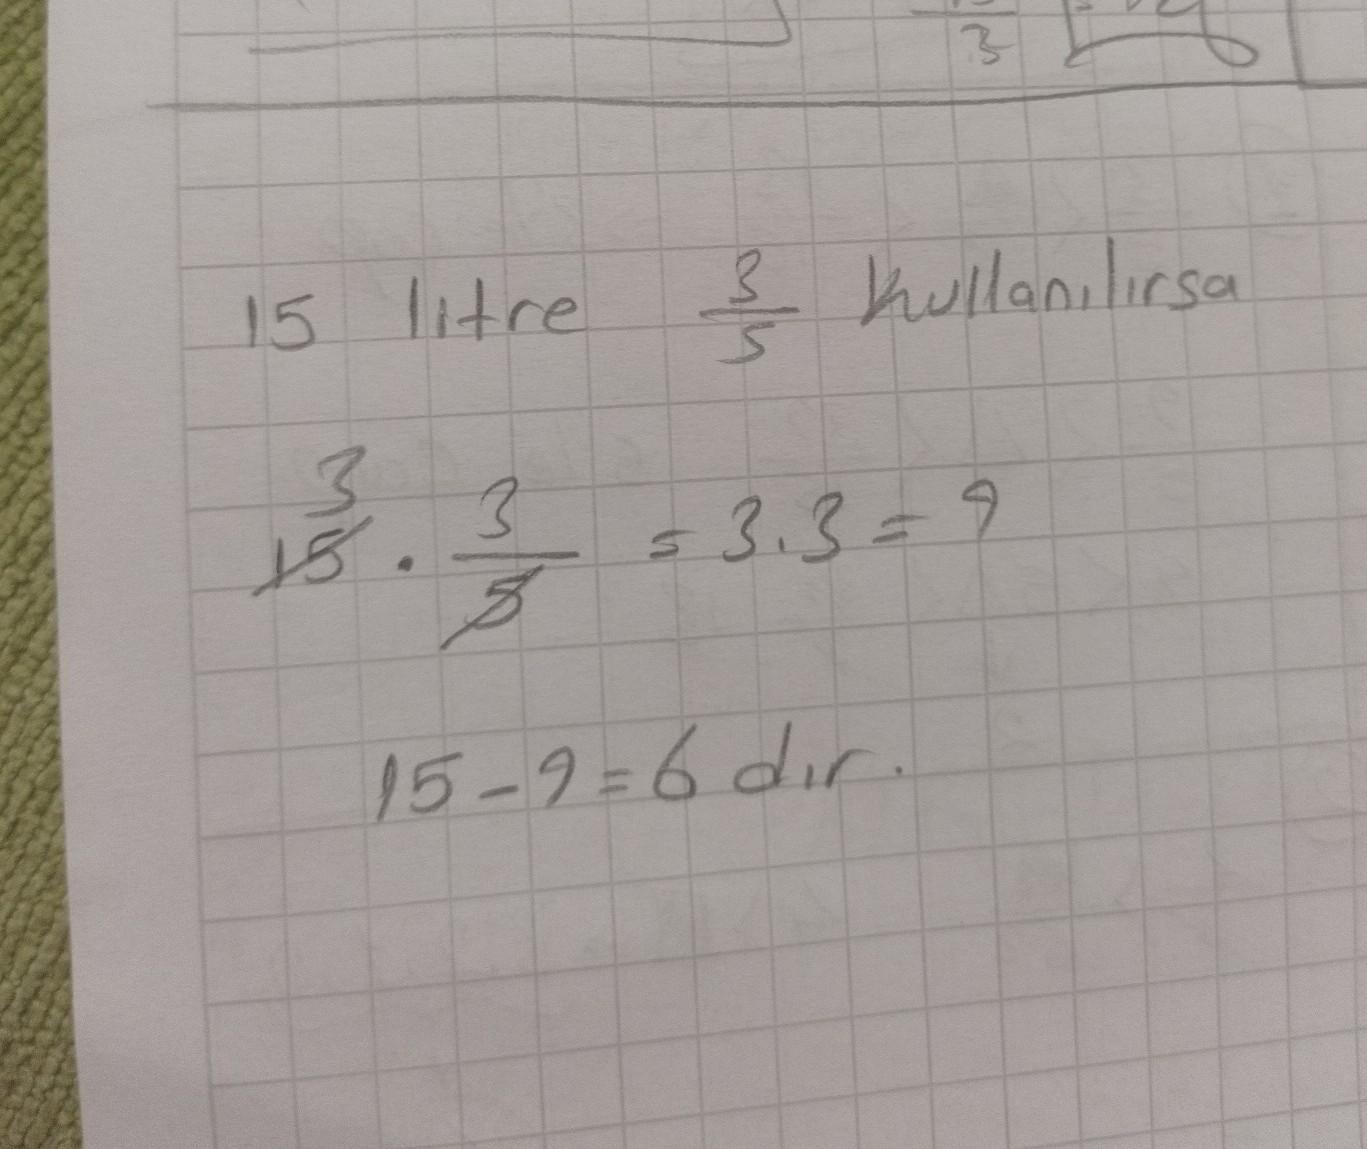 3
15 litre 3/5 kullanılırsa
3
15 . 3/5 = 3.3 = 9
15 - 9 = 6 dır.